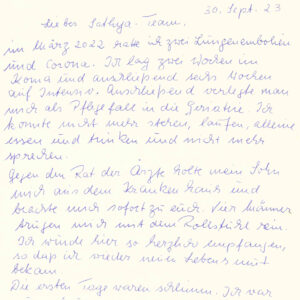 30. Sept. 23
Lieber Sathya-Team,
im März 2022 hatte ich zwei Lungenembolien
und Corona. Ich lag zwei Wochen im
Koma und anschließend sechs Wochen
auf Intensiv. Anschließend verlegte man
mich als Pflegefall in die Geriatrie. Ich
konnte nicht mehr stehen, laufen, alleine
essen und trinken und nicht mehr
sprechen.
Gegen den Rat der Ärzte holte mein Sohn
mich aus dem Krankenhaus und
brachte mich sofort zu euch. Vier Männer
trugen mich mit dem Rollstuhl rein.
Ich wurde hier so herzlich empfangen,
so daß ich wieder neuen Lebensmut
bekam.
Die ersten Tage waren schlimm. Ich war